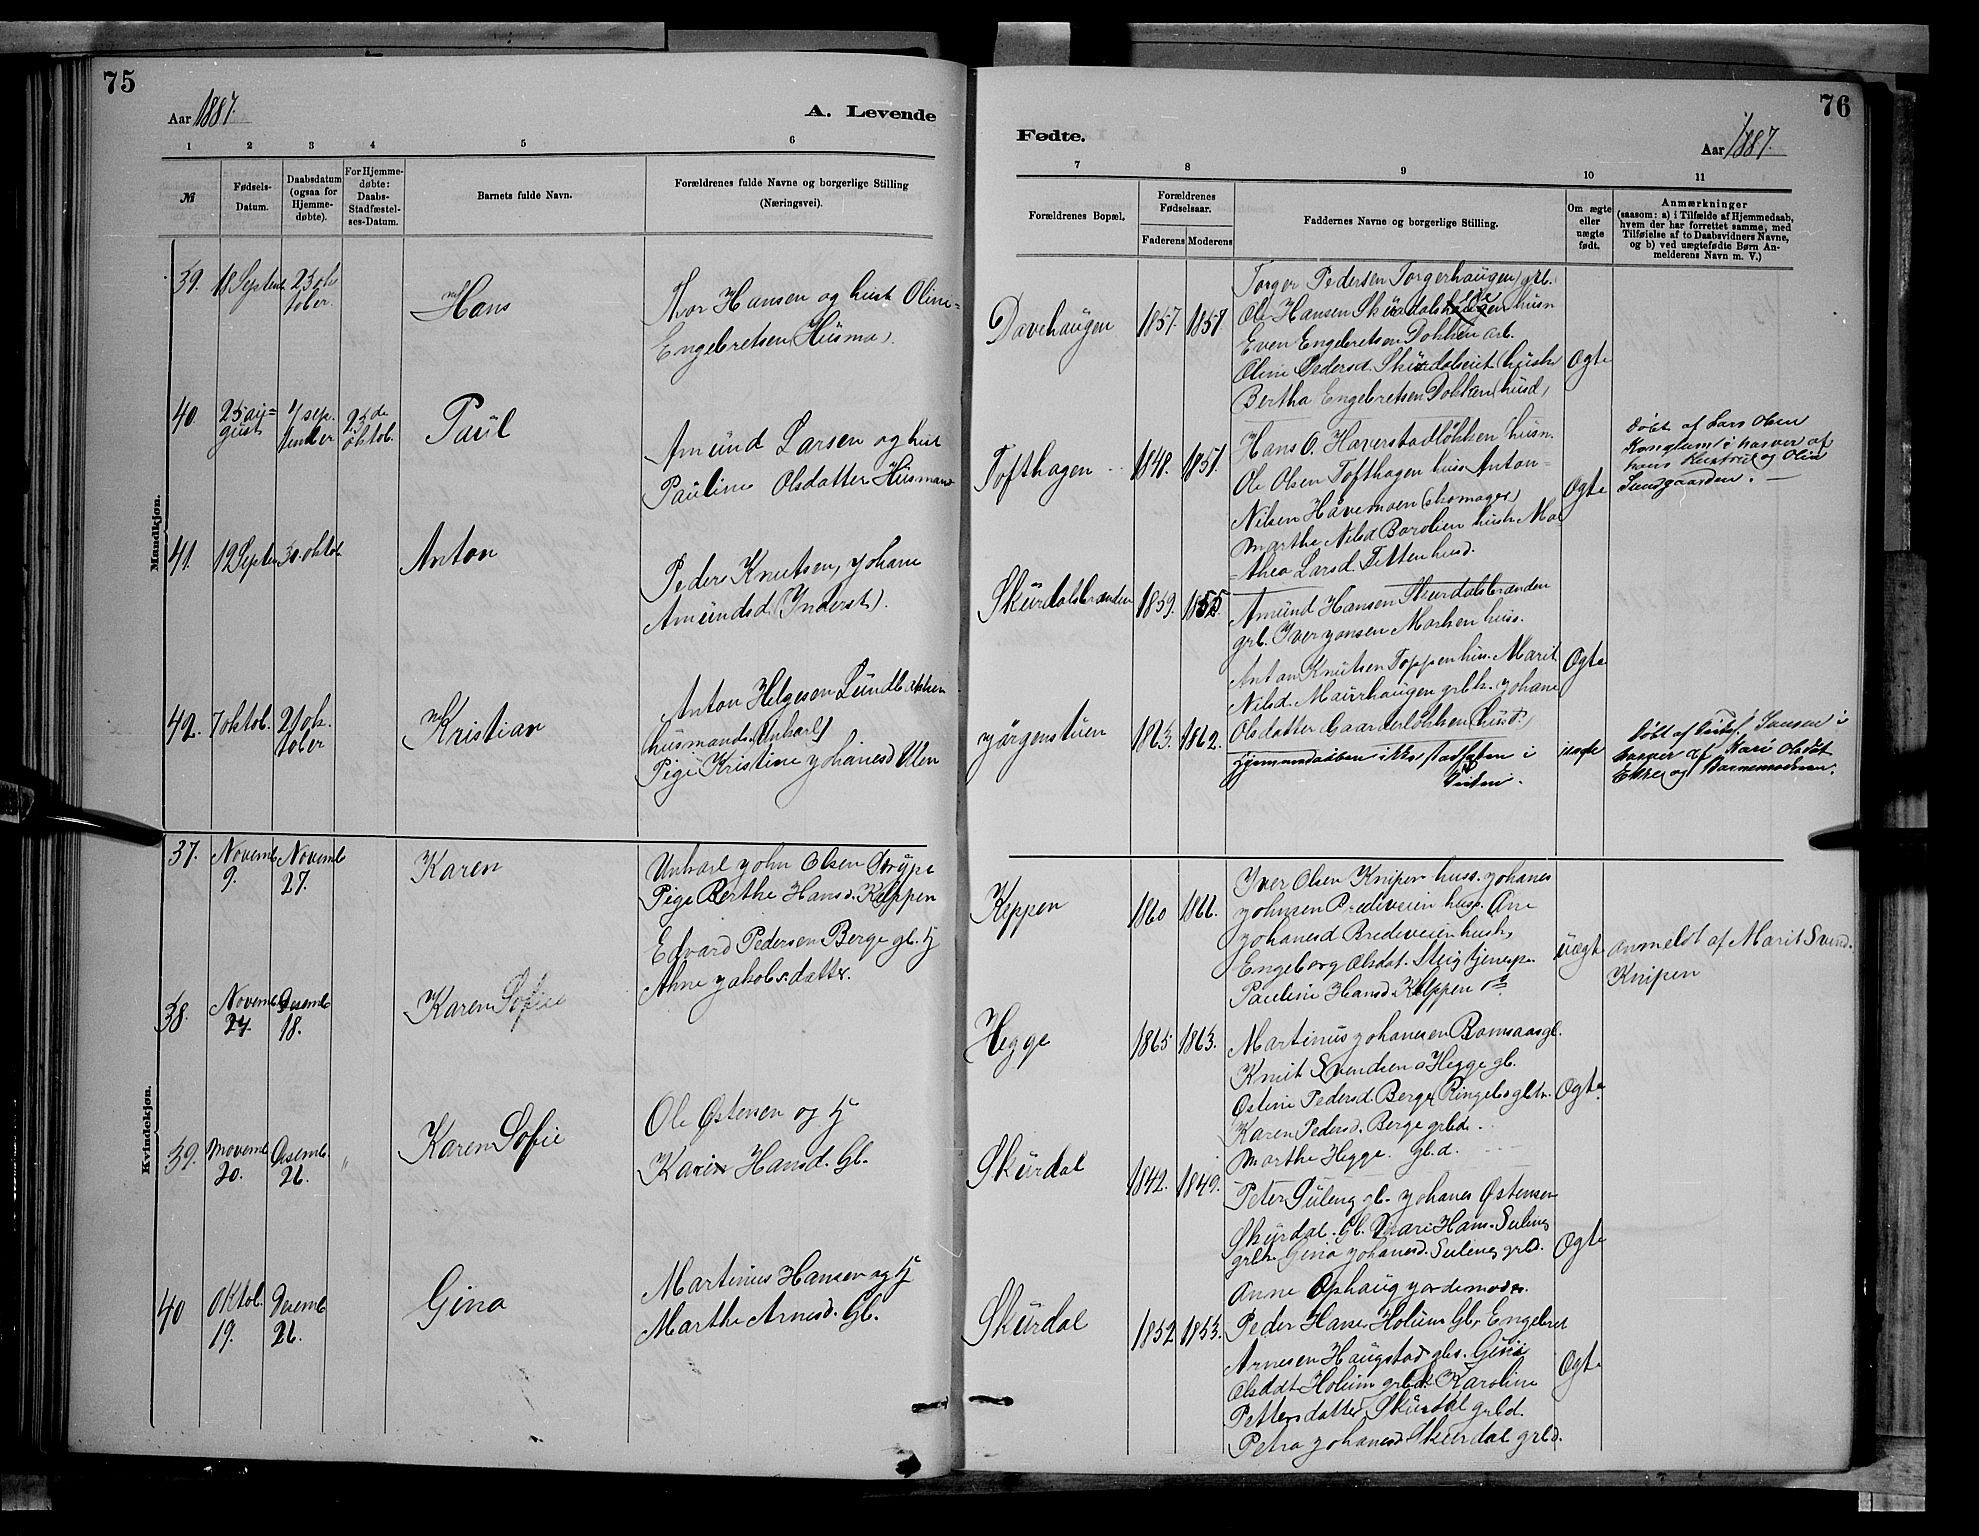 75
Aar 1887.
A. Levende
1 2 3 4 5 6
№
Fødsels-
Datum.
Daabsdatum
(ogsaa for
Hjemme-
døbte).
For Hjemme-
døbte:
Daabs-
Stadfæstel-
ses-Datum.
Barnets fulde Navn.
Forældrenes fulde Navne og borgerlige Stilling
(Næringsvei).
Mandkjøn.
39. 18 Septemb 23 ok
tober.
Hans
Thor Hansen og hust Oline=
Engebretsen (Husma).
40. 25 au=
gust
4 sep.
tember
23 de
oktob.
Paul
Amund Larsen og hust
Pauline Olsdatter Husmand
41. 12 Septem 30. oktob.
Anton
Peder Knutsen, Johane
Amundsd. (Inderst).
42. 7 oktob. 21 ok.
tober
Kristian
Anton Helgesen Lundbakken
husmands. Unkarl
Pige Kristine Johanesd Ulen
Kvindekjøn.
37. Novemb
9.
Novemb
27.
Karen
Unkarl John Olsen Drype
Pige Berthe Hansd. Kleppen
38. Novemb
24.
Desemb
18.
Karen Sofie
Edvard Pedersen Berge gb. og
Ahne Jakobsdatter.
39. Novemb
20.
Desemb
26.
Karen Sofie
Ole Østensen og
Karin Hansd. Gb.
40 Oktob.
19.
Desemb
26.
Gina
Martinus Hansen og
Marthe Arnesd. Gb.
76
Fødte.
Aar 1887.
7 8 9 10 11
Forældrenes Bopæl.
Forældrenes
Fødselsaar.
Faderens Moderens
Faddernes Navne og borgerlige Stilling.
Om ægte
eller
uægte
født.
Anmærkninger
(saasom: a) i Tilfælde af Hjemmedaab,
hvem der har forrettet samme, med
Tilføielse af to Daabsvidners Navne,
og b) ved uægtefødte Børn An-
melderens Navn m. V.)
Dovehaugen 1857. 1857
Torger Pedersen Torgerhaugen, grb.
Ole Hansen Skurdalseie husm
Even Engebretsen Dokken arb.
Oline Pedersd. Skurdalseiet (hustr
Bertha Engebretsen Dokken (husd)
Ogte
Tofthagen 1848. 1851.
Hans O. Haverstadløkken husm.
Ole Olsen Tofthagen hus Anton=
Nilsen Havemoen (skomager)
Marthe Nilsd Barolien hustr Mar
=thea Larsd Titten husd.
Ogte
Døbt af Lars Olsen
Kongslund i nærver af
hans Hustrue og Olia
Sundgaarden.
Skurdalsbranden 1859. 1855
Amund Hansen Skurdalsbranden
grb. Iver Jonsen Morken huss.
Anton Knutsen Toppen hus. Marit
Nilsd. Maurhaugen grbk. Johane
Olsdatter Gaarderløkken (husd.)
Ogte
Jørgenstuen 1863. 1862.
Hjemmedaaben ikke stadfæstet i
Kirken.
uægte
Døbt af Jensen i
nærver af Kari Olsdat
Ekre og Barnemoderen.
Kleppen 1860 1866.
Iver Olsen Knipen huss. Johanes
Johnsen Bredeveien huss. Ane
Johanesd Bredeveien hustr
Engeborg Olsdat. Steig tjenepe.
Pauline Hansd. Kleppen
uægt
Anmeldt af Marit Svend.
Knipen
Hegge 1865. 1863.
Martinus Johanesen Bamsaas gb.
Knut Svendsen Hegge gb.
Ostine Pedersd. Berge Ringebo gbk.
Karen Pedersd. Berge grbd.
Marthe Hegge. Gb.d.
Ogte
Skurdal 1842. 1849.
Peter Suleng gb. Johanes Østensen
Skurdal. Gb. Mari Hans. Suleng
grbk. Gina Johanesd. Suleng grbd.
Anne Ophaug Jordemoder.
Ogte
Skurdal 1852 1853.
Peder Hanse Holum Gb. Engebret
Arnesen Haugstad gbs. Gina
Olsdat. Holum grbd. Karoline
Pettersdatter Skurdal grbd.
Petra Johanesd Skurdal grbd.
Ogte